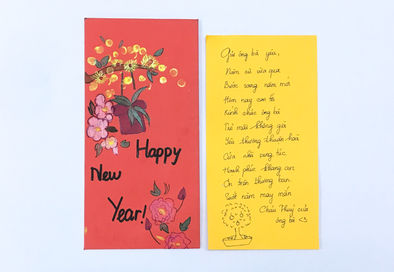 Happy
New
Year!
Gửi ông bà yêu,
Năm cũ vừa qua
Bước sang năm mới
Hôm nay con tới
Kính chúc ông bà
Tuổi mới không già
Yêu thương thuận hoà
Cửa nhà sung túc
Hạnh phúc khang an
Ơn trên thương ban
Suốt năm may mắn
Cháu Thuỳ của
ông bà <3